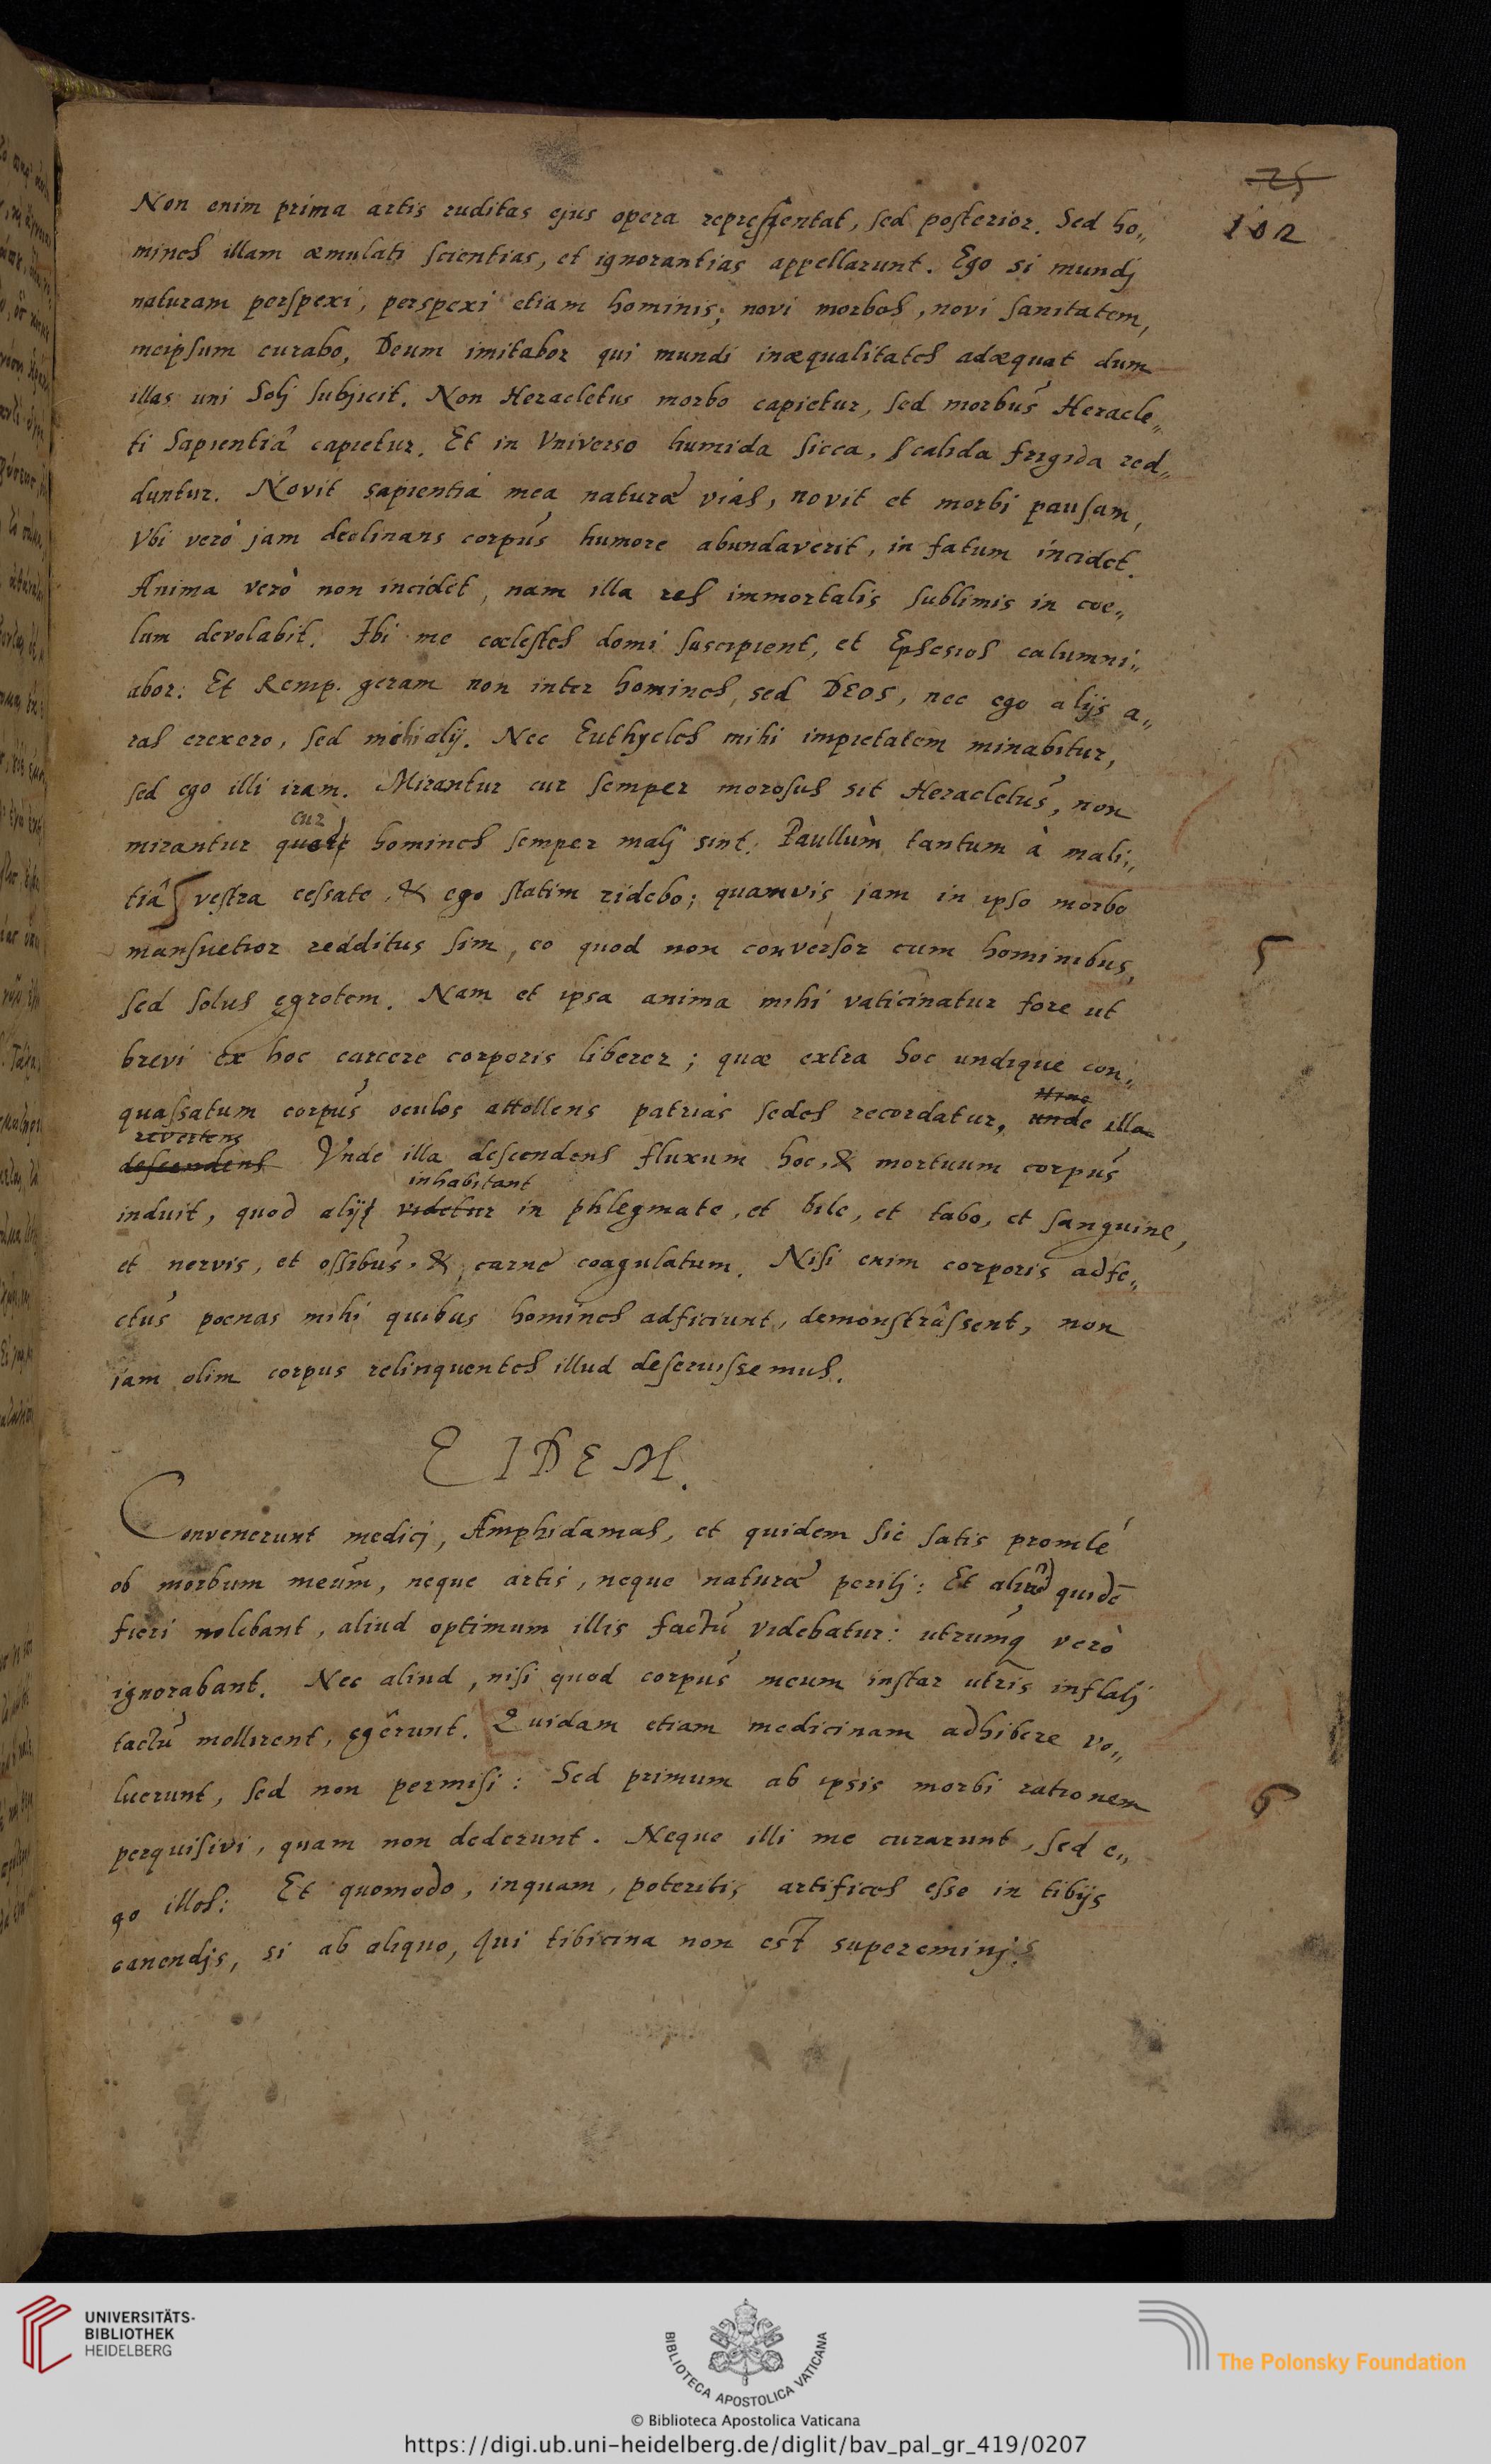 25
102
Non enim prima artis ruditas ejus opera repręsentat, sed posterior. Sed ho„
mines illam æmulati scientias, et ignorantias appellarunt. Ego si mundj
naturam perspexi, perspexi etiam hominis; novi morbos, novi sanitatem,
meipsum curabo, Deum imitabor qui mundi inæqualitates adæquat dum
illas uni Solj subjicit. Non Heracletus morbo capietur, sed morbus Heracle„
ti Sapientiâ capietur. Et in Vniverso humida sicca, calida frigida red„
duntur. Novit sapientia mea naturæ vias, novit et morbi pausam,
Vbi verò jam declinans corpus humore abundaverit, in fatum incidet.
Anima verò non incidet, nam illa res immortalis sublimis in coe„
lum devolabit. Ibi me cœlestes domi suscipient, et Ephesios calumni„
abor. Et Remp. geram non inter homines, sed DEOS, nec ego alijs a„
ras erexero, sed mihi alij. Nec Euthycles mihi impietatem minabitur,
sed ego illi iram. Mirantur cur semper morosus sit Heracletus, non
cur
mirantur homines semper malj sint. Paullùm tantum à mali„
tiâ vestra cessate, & ego statim ridebo; quamvis jam in ipso morbo
mansuetior redditus sim, eo quod non conversor cum hominibus,
5
sed solus ęgrotem. Nam et ipsa anima mihi vaticinatur fore ut
brevi ex hoc carcere corporis liberer; quæ extra hoc undique con„
Hinc
quassatum corpus oculos attollens patrias sedes recordatur, unde illa
revertens
descendens Vnde illa descendens fluxum hoc, & mortuum corpus
inhabitant
induit, quod alij videtur in phlegmate, et bile, et tabo, et sanguine,
et nervis, et ossibus, & carne coagulatum. Nisi enim corporis adfe„
ctus poenas mihi quibus homines adficiunt, demonstrâssent, non
jam olim corpus relinquentes illud deseruissemus.
EIDEM.
Convenerunt medicj, Amphidamas, et quidem sic satis promtè
ob morbum meum, neque artis, neque naturæ peritj: Et quidē
fieri nolebant, aliud optimum illis factu videbatur: utrumq verò
ignorabant. Nec aliud, nisi quod corpus meum instar utris inflatj
tactu mollirent, egêrunt. Quidam etiam medicinam adhibere vo„
luerunt, sed non permisi: Sed primum ab ipsis morbi rationem
6
perquisivi, quam non dederunt. Neque illi me curarunt, sed e„
go illos: Et quomodo, inquam, poteritis artifices esse in tibijs
canendjs, si ab aliquo, qui tibicina non est superemini?
UNIVERSITÄTS-
BIBLIOTHEK
HEIDELBERG
BIBLIOTECA APOSTOLICA VATICANA
The Polonsky Foundation
© Biblioteca Apostolica Vaticana
https://digi.ub.uni-heidelberg.de/diglit/bav_pal_gr_419/0207